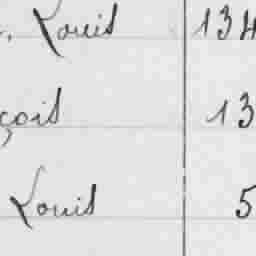 . Louis 134
çois 13
Louis 5